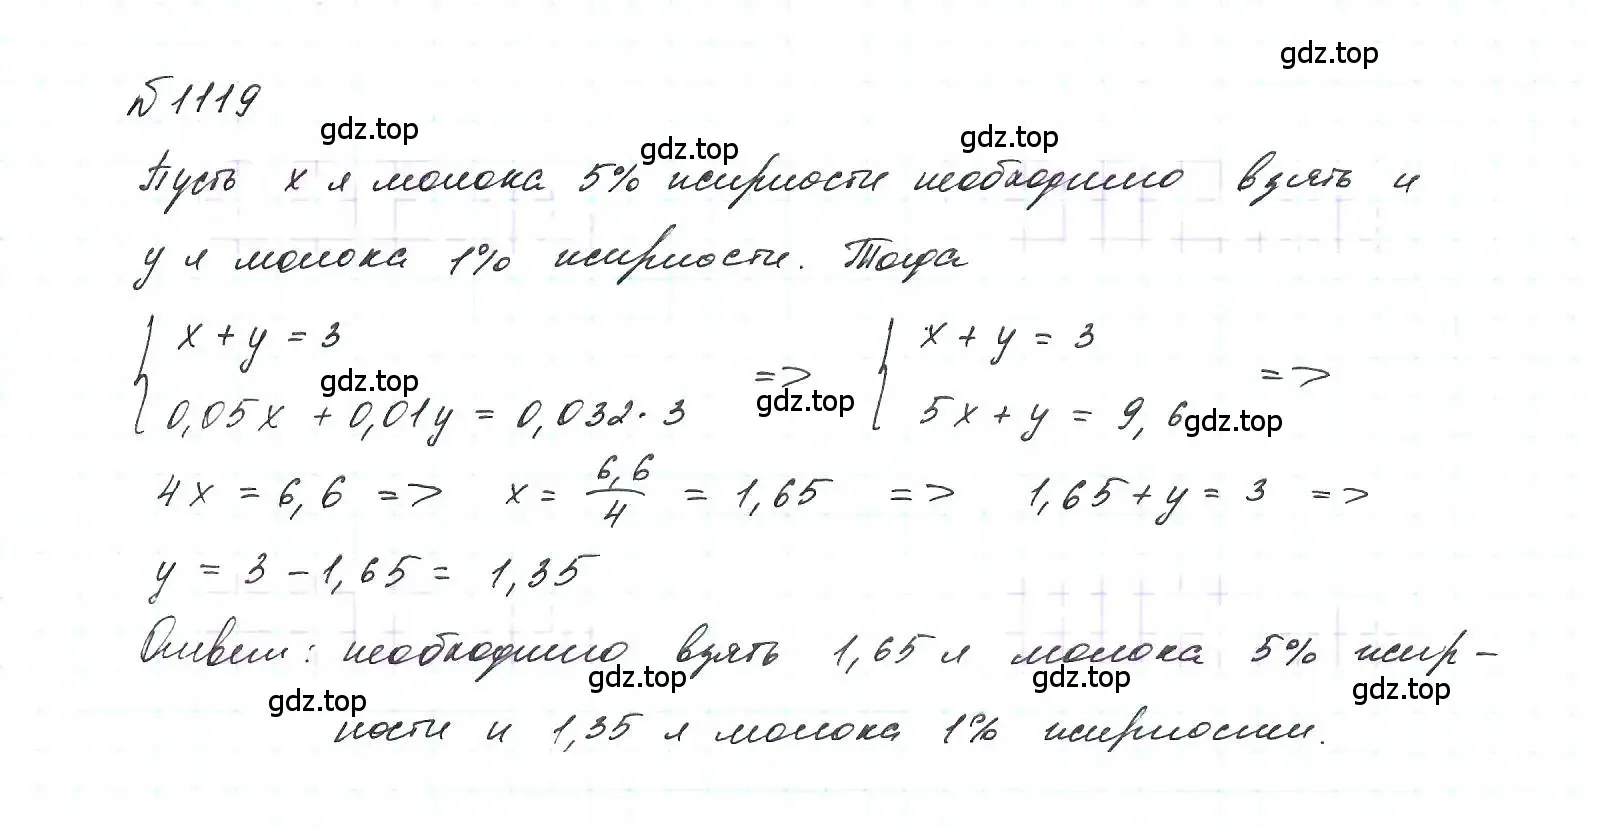 gdz.top
№ 1119
gdz.top gdz.top gdz.top
Пусть x л молока 5% жирности необходимо взять и
y л молока 1% жирности. Тогда
{ x + y = 3 => { x + y = 3 =>
gdz.top gdz.top gdz.top
0,05x + 0,01y = 0,032 · 3 5x + y = 9,6
4x = 6,6 => x = 6,6/4 = 1,65 => 1,65 + y = 3 =>
y = 3 - 1,65 = 1,35
Ответ: необходимо взять 1,65 л молока 5% жир-
gdz.top gdz.top gdz.top gdz.top
ности и 1,35 л молока 1% жирности.